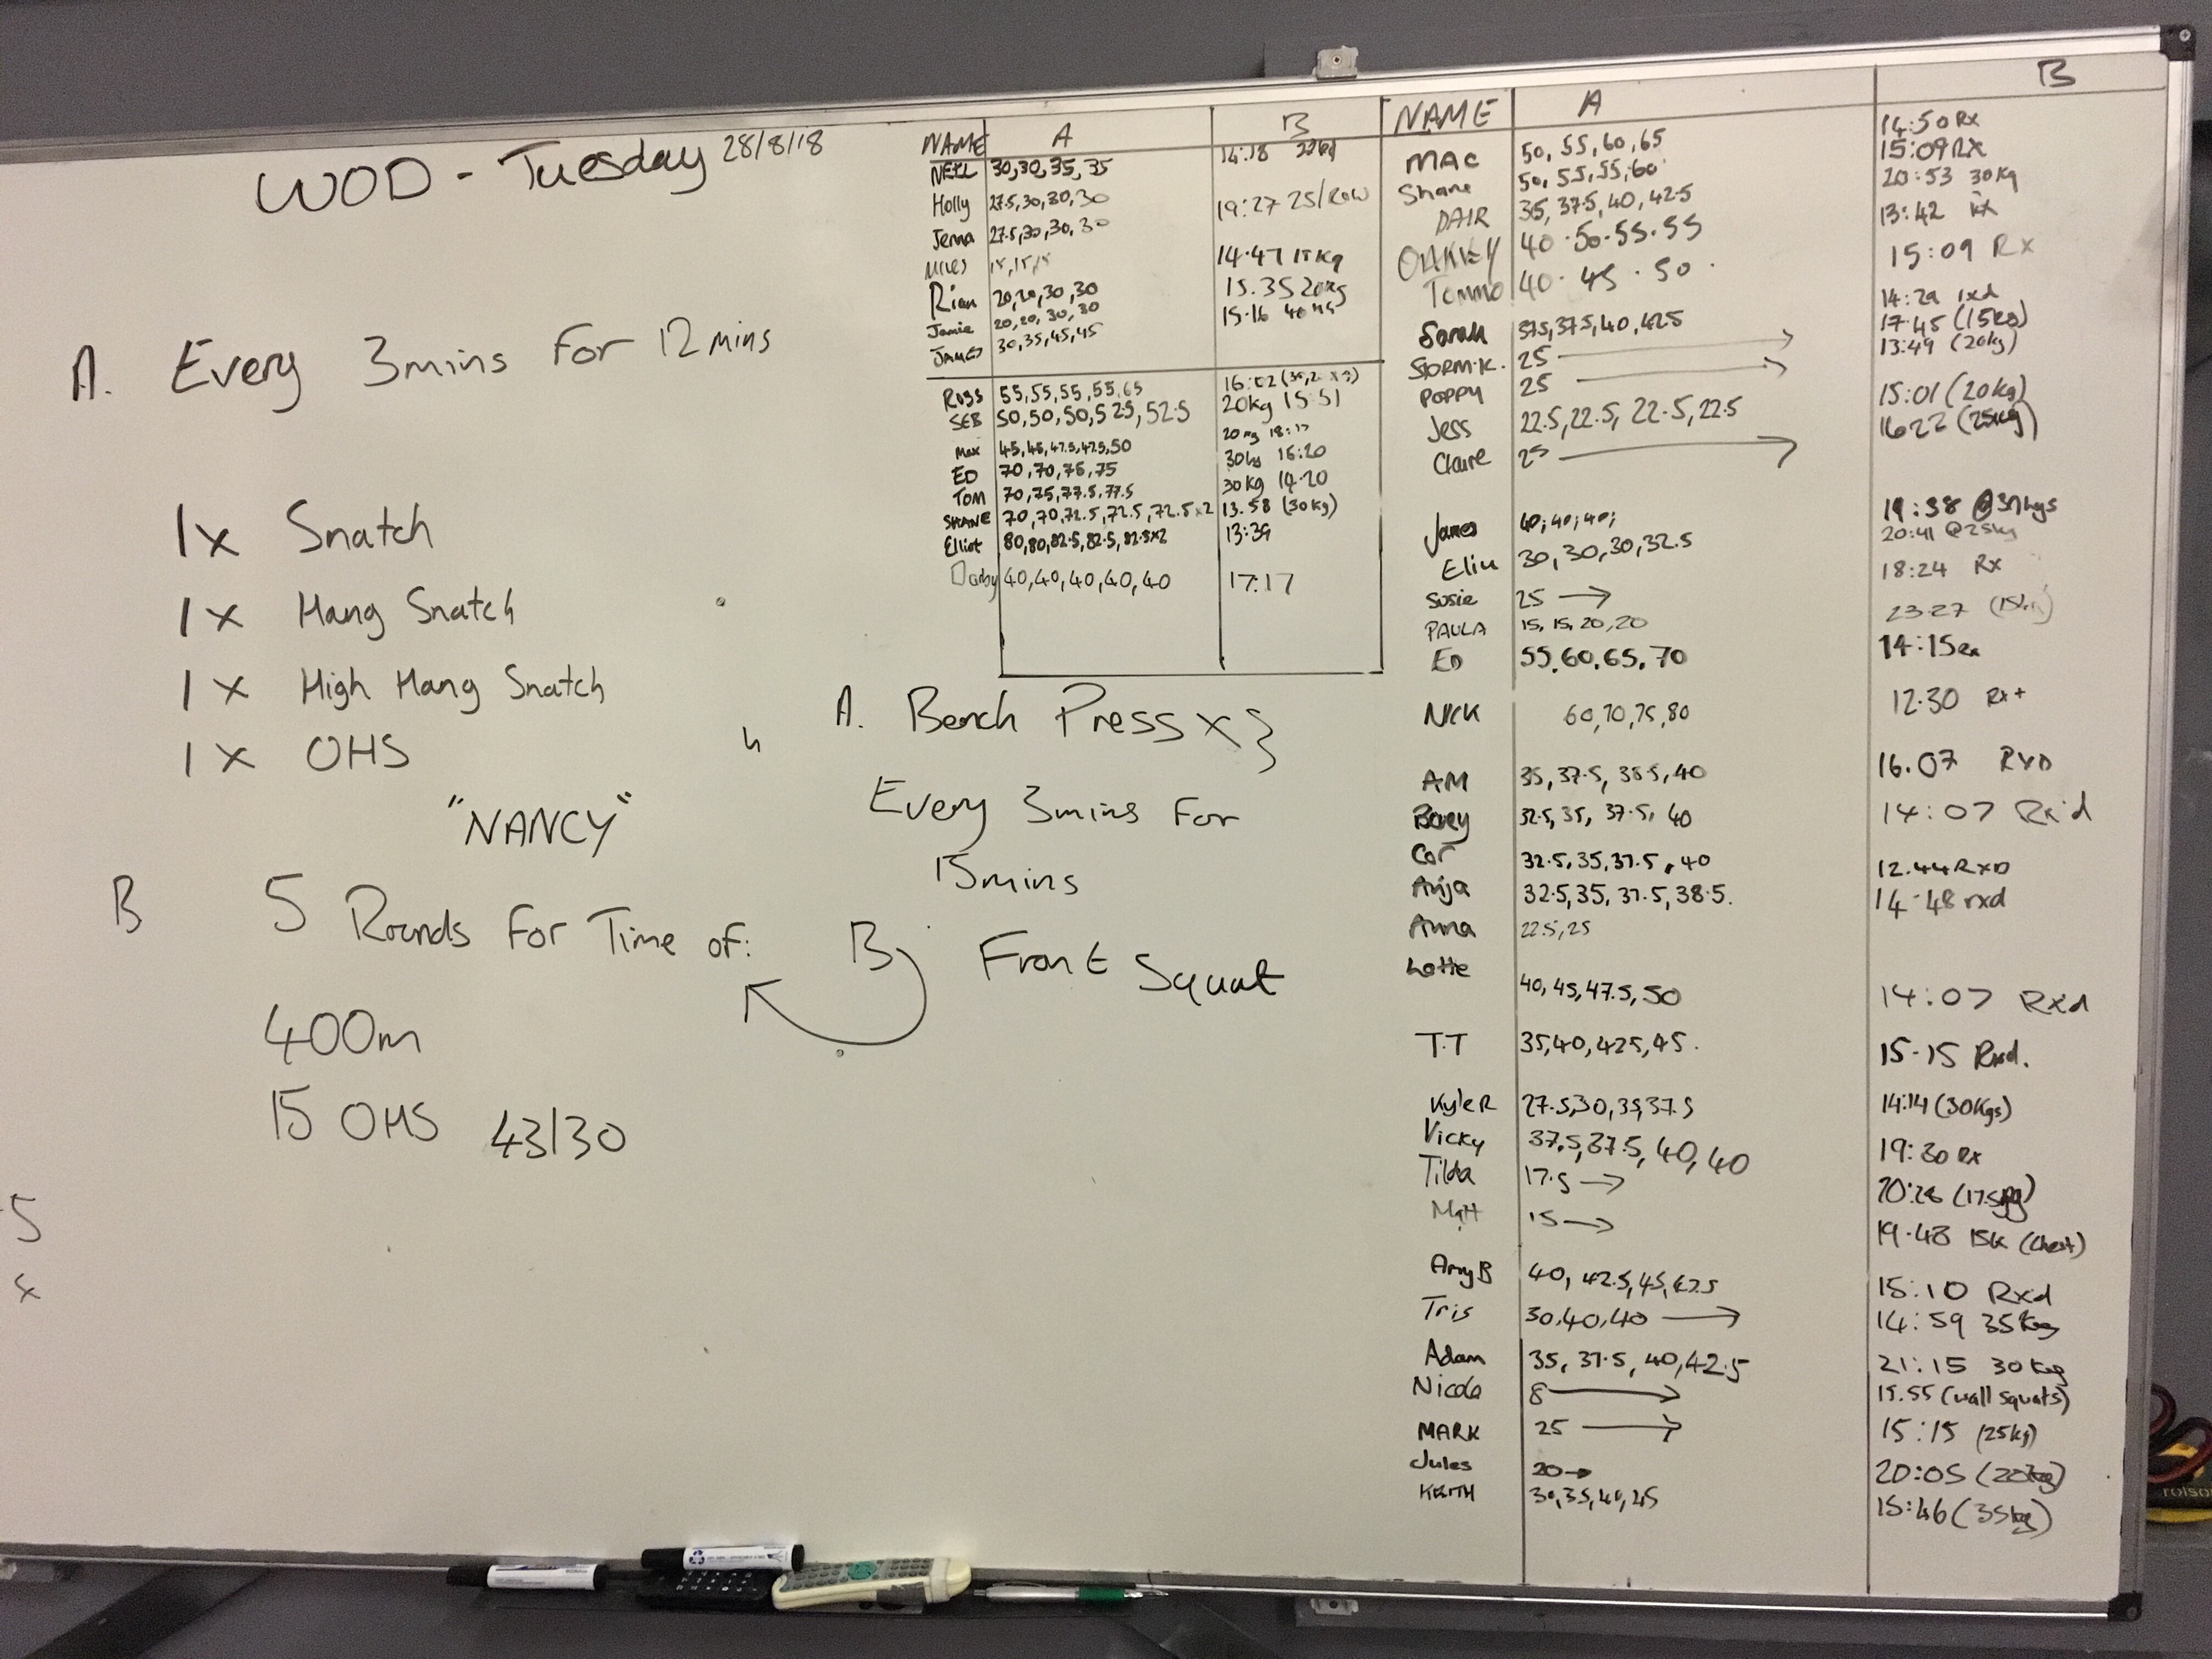 WOD - Tuesday 28/8/18
A. Every 3mins For 12mins
1x Snatch
1x Hang Snatch
1x High Hang Snatch
1x OHS
"NANCY"
B 5 Rounds For Time of:
400m
15 OHS 43/30
A. Bench Press x 3
Every 3mins For
15mins
B) Front Squat
NAME A B
NEIL 30,30,35,35 14:18
Holly 27.5,30,30,30 19:27 25/Row
Jenna 27.5,30,30,30
15,15,15 14.47 15kg
Rian 20,20,30,30 15.35 20kg
Jamie 20,20,30,30 15.16
JAMES 30,35,45,45
Ross 55,55,55,55,65 16:02
SEB 50,50,50,52.5,52.5 20kg 15:51
Max 45,45,47.5,47.5,50 20kg 18:17
ED 70,70,75,75 30kg 16:20
TOM 70,75,77.5,77.5 30kg 14.20
SHANE 70,70,72.5,72.5,72.5x2 13.58 (30kg)
Elliot 80,80,82.5,82.5,82.5x2 13:39
Darby 40,40,40,40,40 17:17
NAME A B
MAC 50,55,60,65 14:50 Rx
Shane 50,55,55,60 15:09 RX
DAIR 35,37.5,40,42.5 20:53 30kg
OAKLEY 40.50.55.55 13:42 RX
Tommo 40.45.50. 15:09 Rx
Sarah 37.5,37.5,40,42.5 14:29 rxd
STORM.K. 25 → 17:45 (15kg)
POPPY 25 → 13:49 (20kg)
Jess 22.5,22.5,22.5,22.5 15:01 (20kg)
Claire 25 → 1622 (25kg)
James 40,40,40, 19:38
Elin 30,30,30,32.5 20:41 @25kg
Susie 25 → 18:24 Rx
PAULA 15,15,20,20 23.27
ED 55,60,65,70 14:15 Rx
NICK 60,70,75,80 12.30 Rx+
AM 35,37.5,38.5,40 16.07 RXD
32.5,35,37.5,40 14:07 Rx'd
32.5,35,37.5,40 12.44 RXD
Anja 32.5,35,37.5,38.5. 14.48 rxd
Anna 22.5,25
Lottie 40,45,47.5,50 14:07 Rxd
T.T 35,40,42.5,45. 15.15 Rxd.
Kyle R 27.5,30,35,37.5 14:14 (30kgs)
Vicky 37.5,37.5,40,40 19:30 Rx
Tilda 17.5 → 20:28 (17.5kg)
Matt 15 → 19.48 15k (Chest)
Amy B 40,42.5,45,47.5 15:10 Rxd
Tris 30,40,40 → 14:59 35kg
Adam 35,37.5,40,42.5 21:15 30kg
Nicola 8 → 15.55 (wall squats)
MARK 25 → 15:15 (25kg)
Jules 20 → 20:05 (20kg)
KEITH 30,35,40,45 15:46 (35kg)